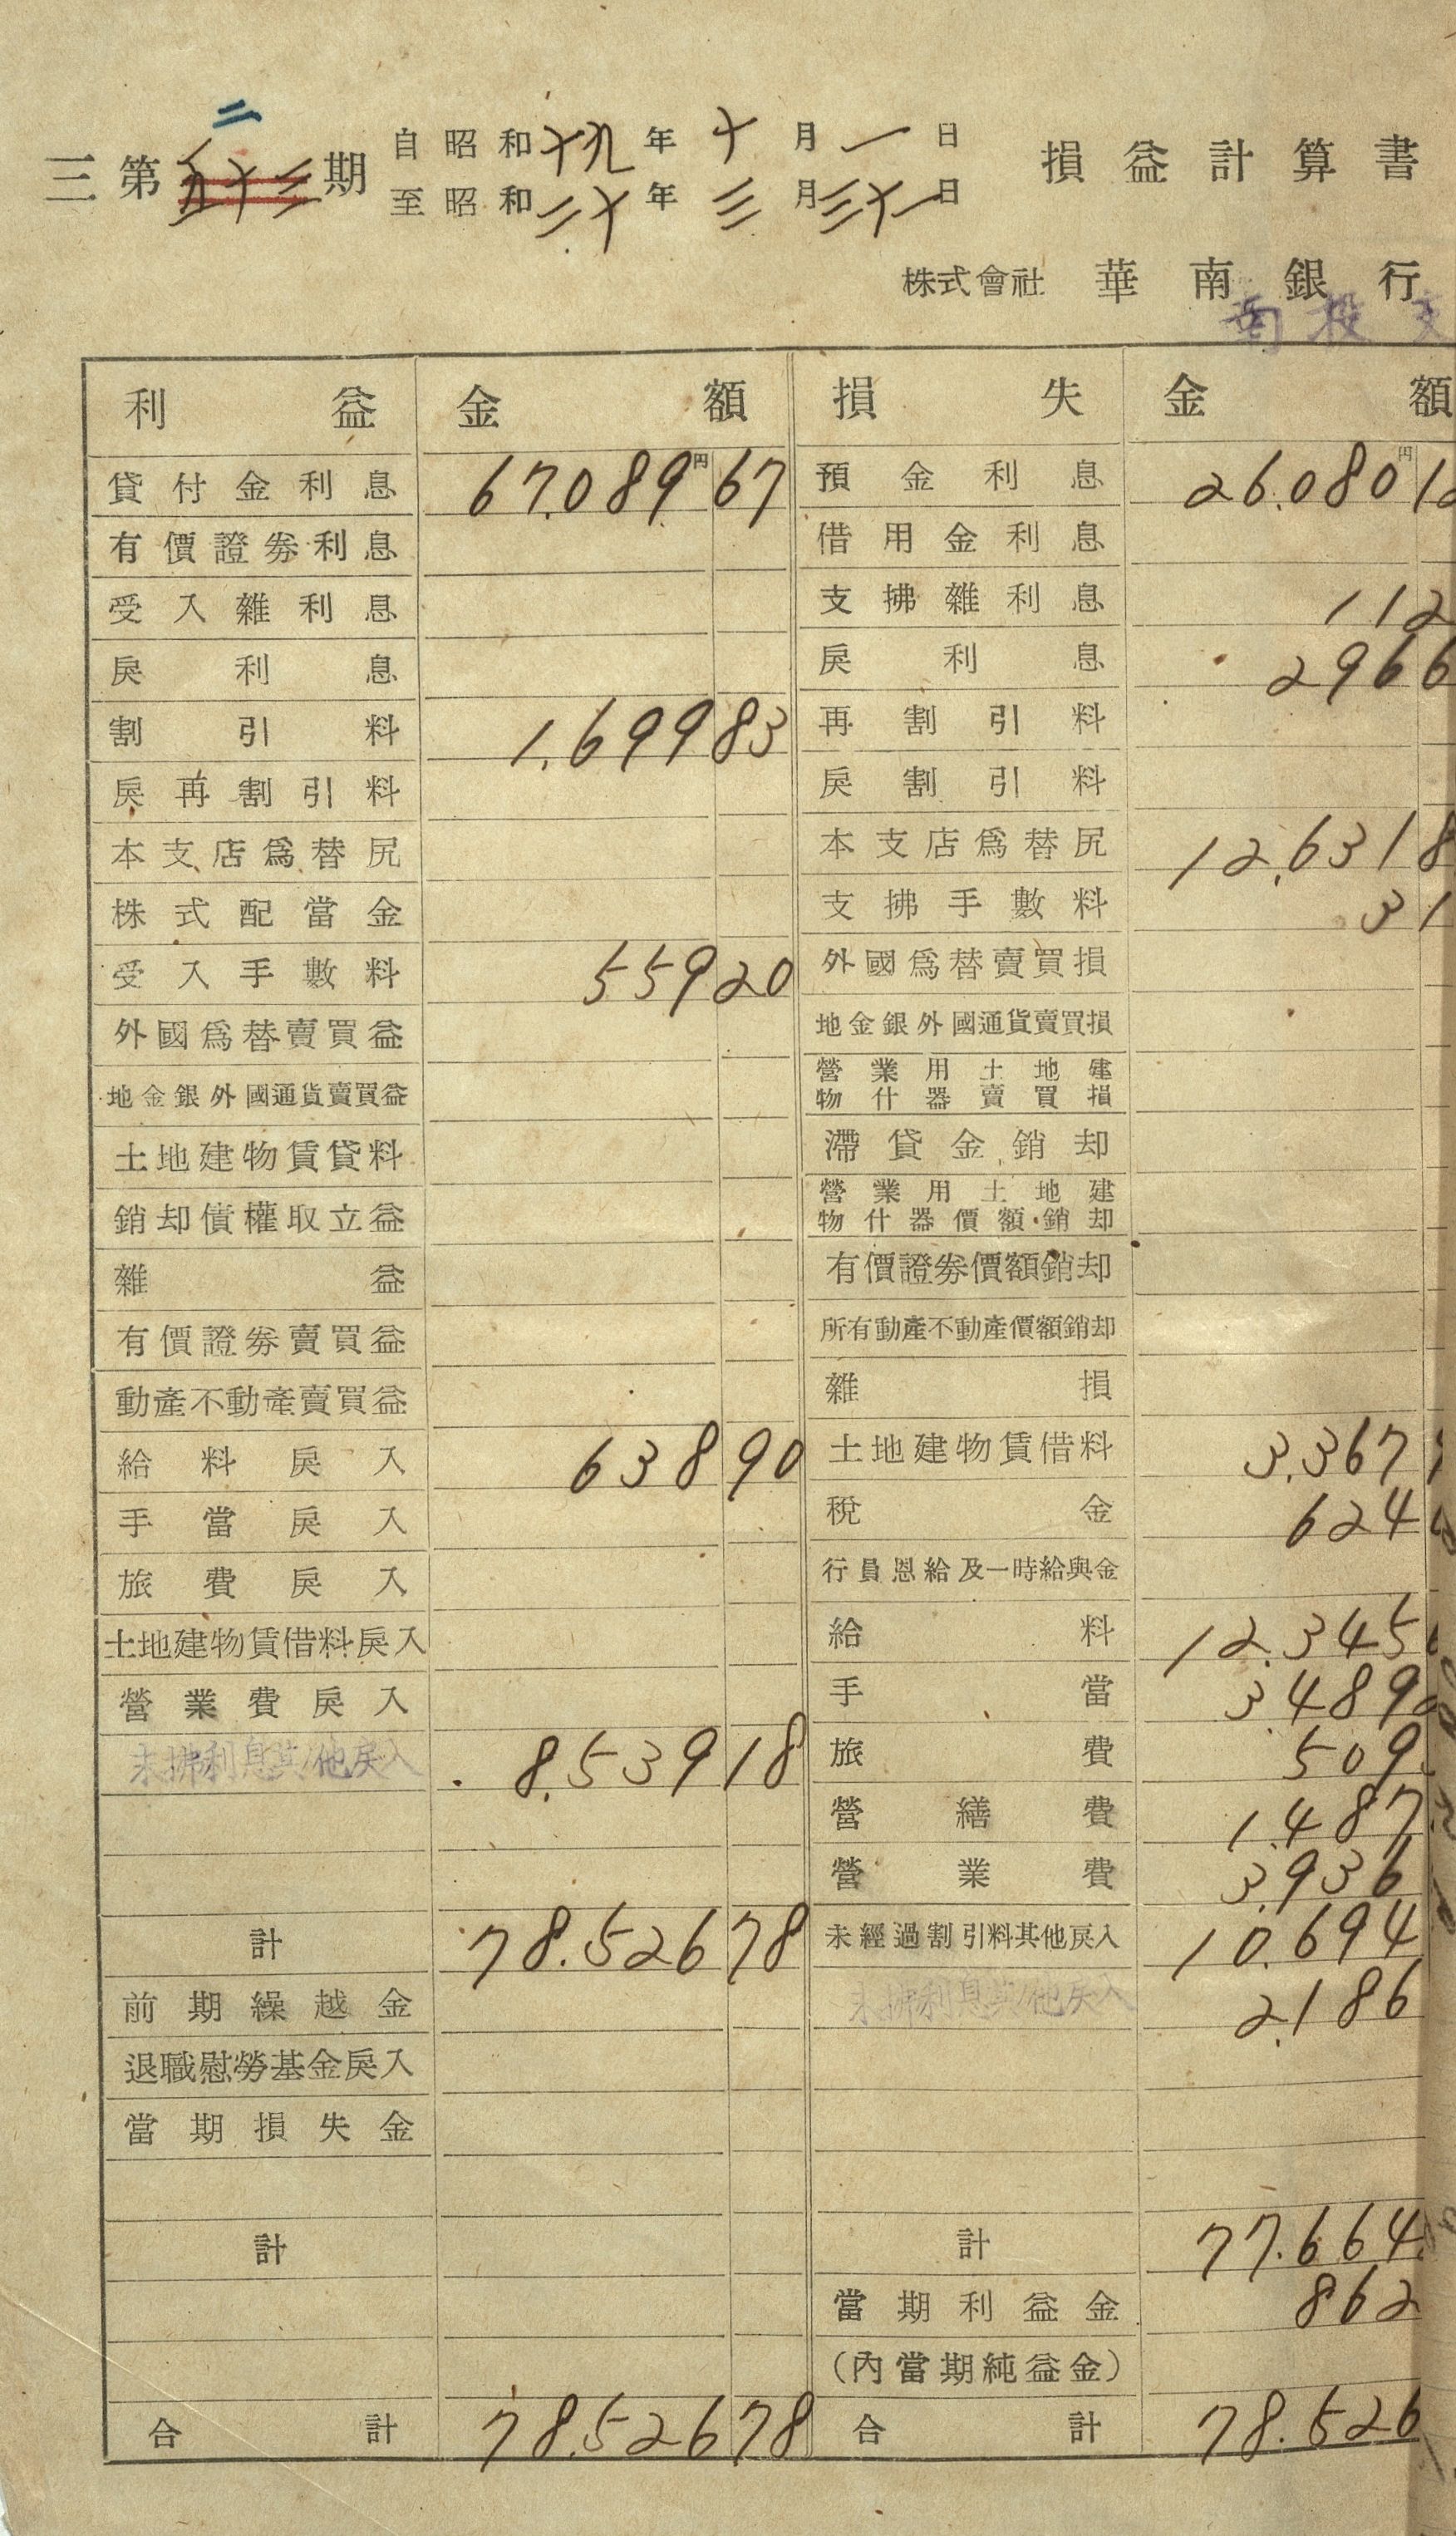 二
三 第 五十三 期 自昭和十九年十月一日 損益計算書
至昭和二十年三月三十一日
株式會社 華南銀行
南投支
利益 金額 損失 金額
貸付金利息 67.089円67 預金利息 26.080円12
有價證券利息 借用金利息
受入雜利息 支拂雜利息 112
戾利息 戾利息 2966
割引料 1.69983 再割引料
戾再割引料 戾割引料
本支店爲替尻 本支店爲替尻 12.6318
株式配當金 支拂手數料 31
受入手數料 55920 外國爲替賣買損
外國爲替賣買益 地金銀外國通貨賣買損
地金銀外國通貨賣買益 營業用土地建物什器賣買損
土地建物賃貸料 滯貸金銷却
銷却債權取立益 營業用土地建物什器價額銷却
雜益 有價證券價額銷却
有價證券賣買益 所有動產不動產價額銷却
動產不動產賣買益 雜損
給料戾入 63890 土地建物賃借料 3.367
手當戾入 稅金 624
旅費戾入 行員恩給及一時給與金
土地建物賃借料戾入 給料 12.345
營業費戾入 手當 3.489
未拂利息其他戾入 8.53918 旅費 509
營繕費 1.487
營業費 3.936
計 78.52678 未經過割引料其他戾入 10.694
前期繰越金 未拂利息其他戾入 2.186
退職慰勞基金戾入
當期損失金
計 計 77.664
當期利益金 862
(內當期純益金)
合計 78.52678 合計 78.526